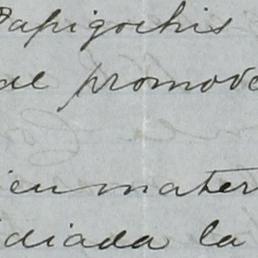 Papigochis
de promove
ien mater
idiada la